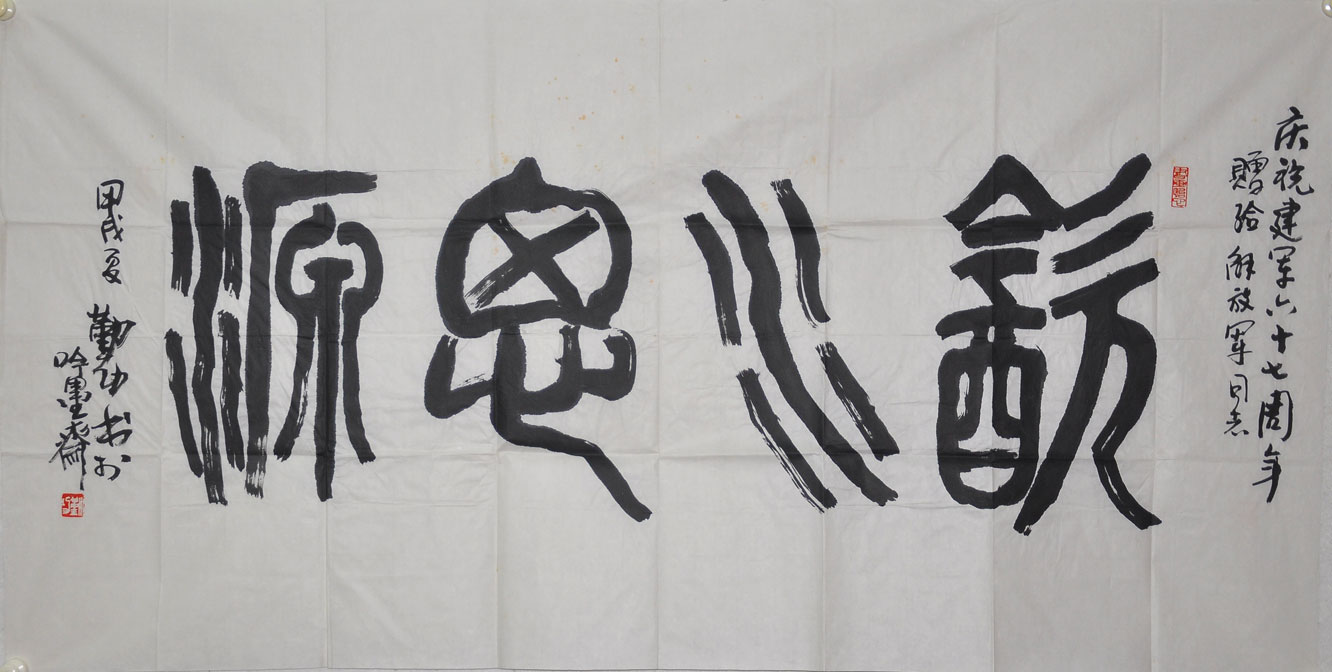 庆祝建军六十七周年
赠给解放军同志
歙水思源
甲戌夏
勤功书于
吟墨斋